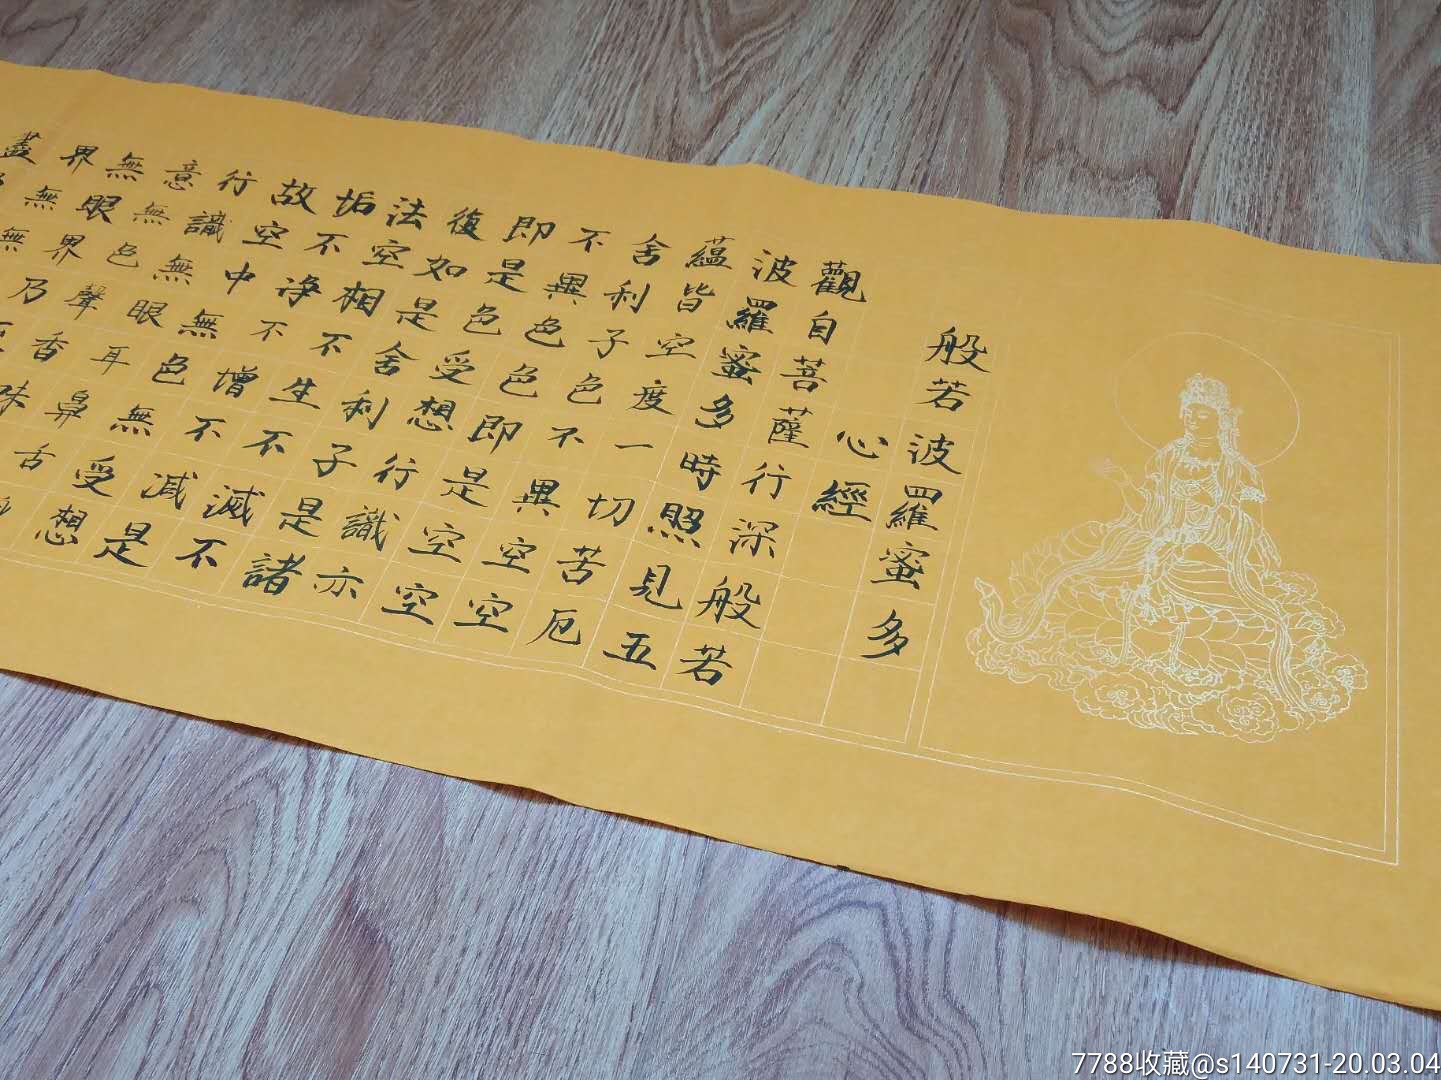 般若波羅蜜多
心經
觀自菩薩行深般若
波羅蜜多時照見五
蘊皆空度一切苦厄
舍利子色不異空空
不異色色即是空空
即是色受想行識亦
復如是舍利子是諸
法空相不生不滅不
垢不净不增不减是
故空中無色無受想
行識無眼耳鼻舌
意無色聲香味
無眼界乃
界無無
盡
7788收藏@s140731-20.03.04